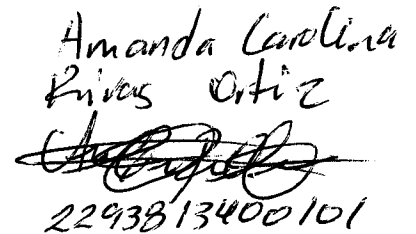 Amanda Carolina
Rivas Ortiz
2293813400101